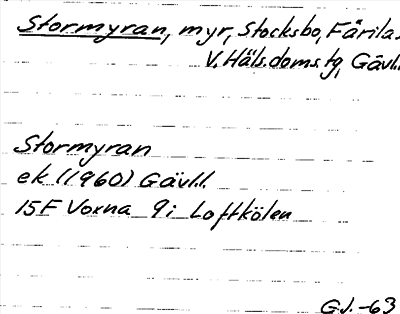 Stormyran, myr, Stocksbo, Färila s
V. Häls. doms. tg, Gävl.
Stormyran
ek (1960) Gävl.l.
15F Voxna 9i Loftkölen
G.J. -63